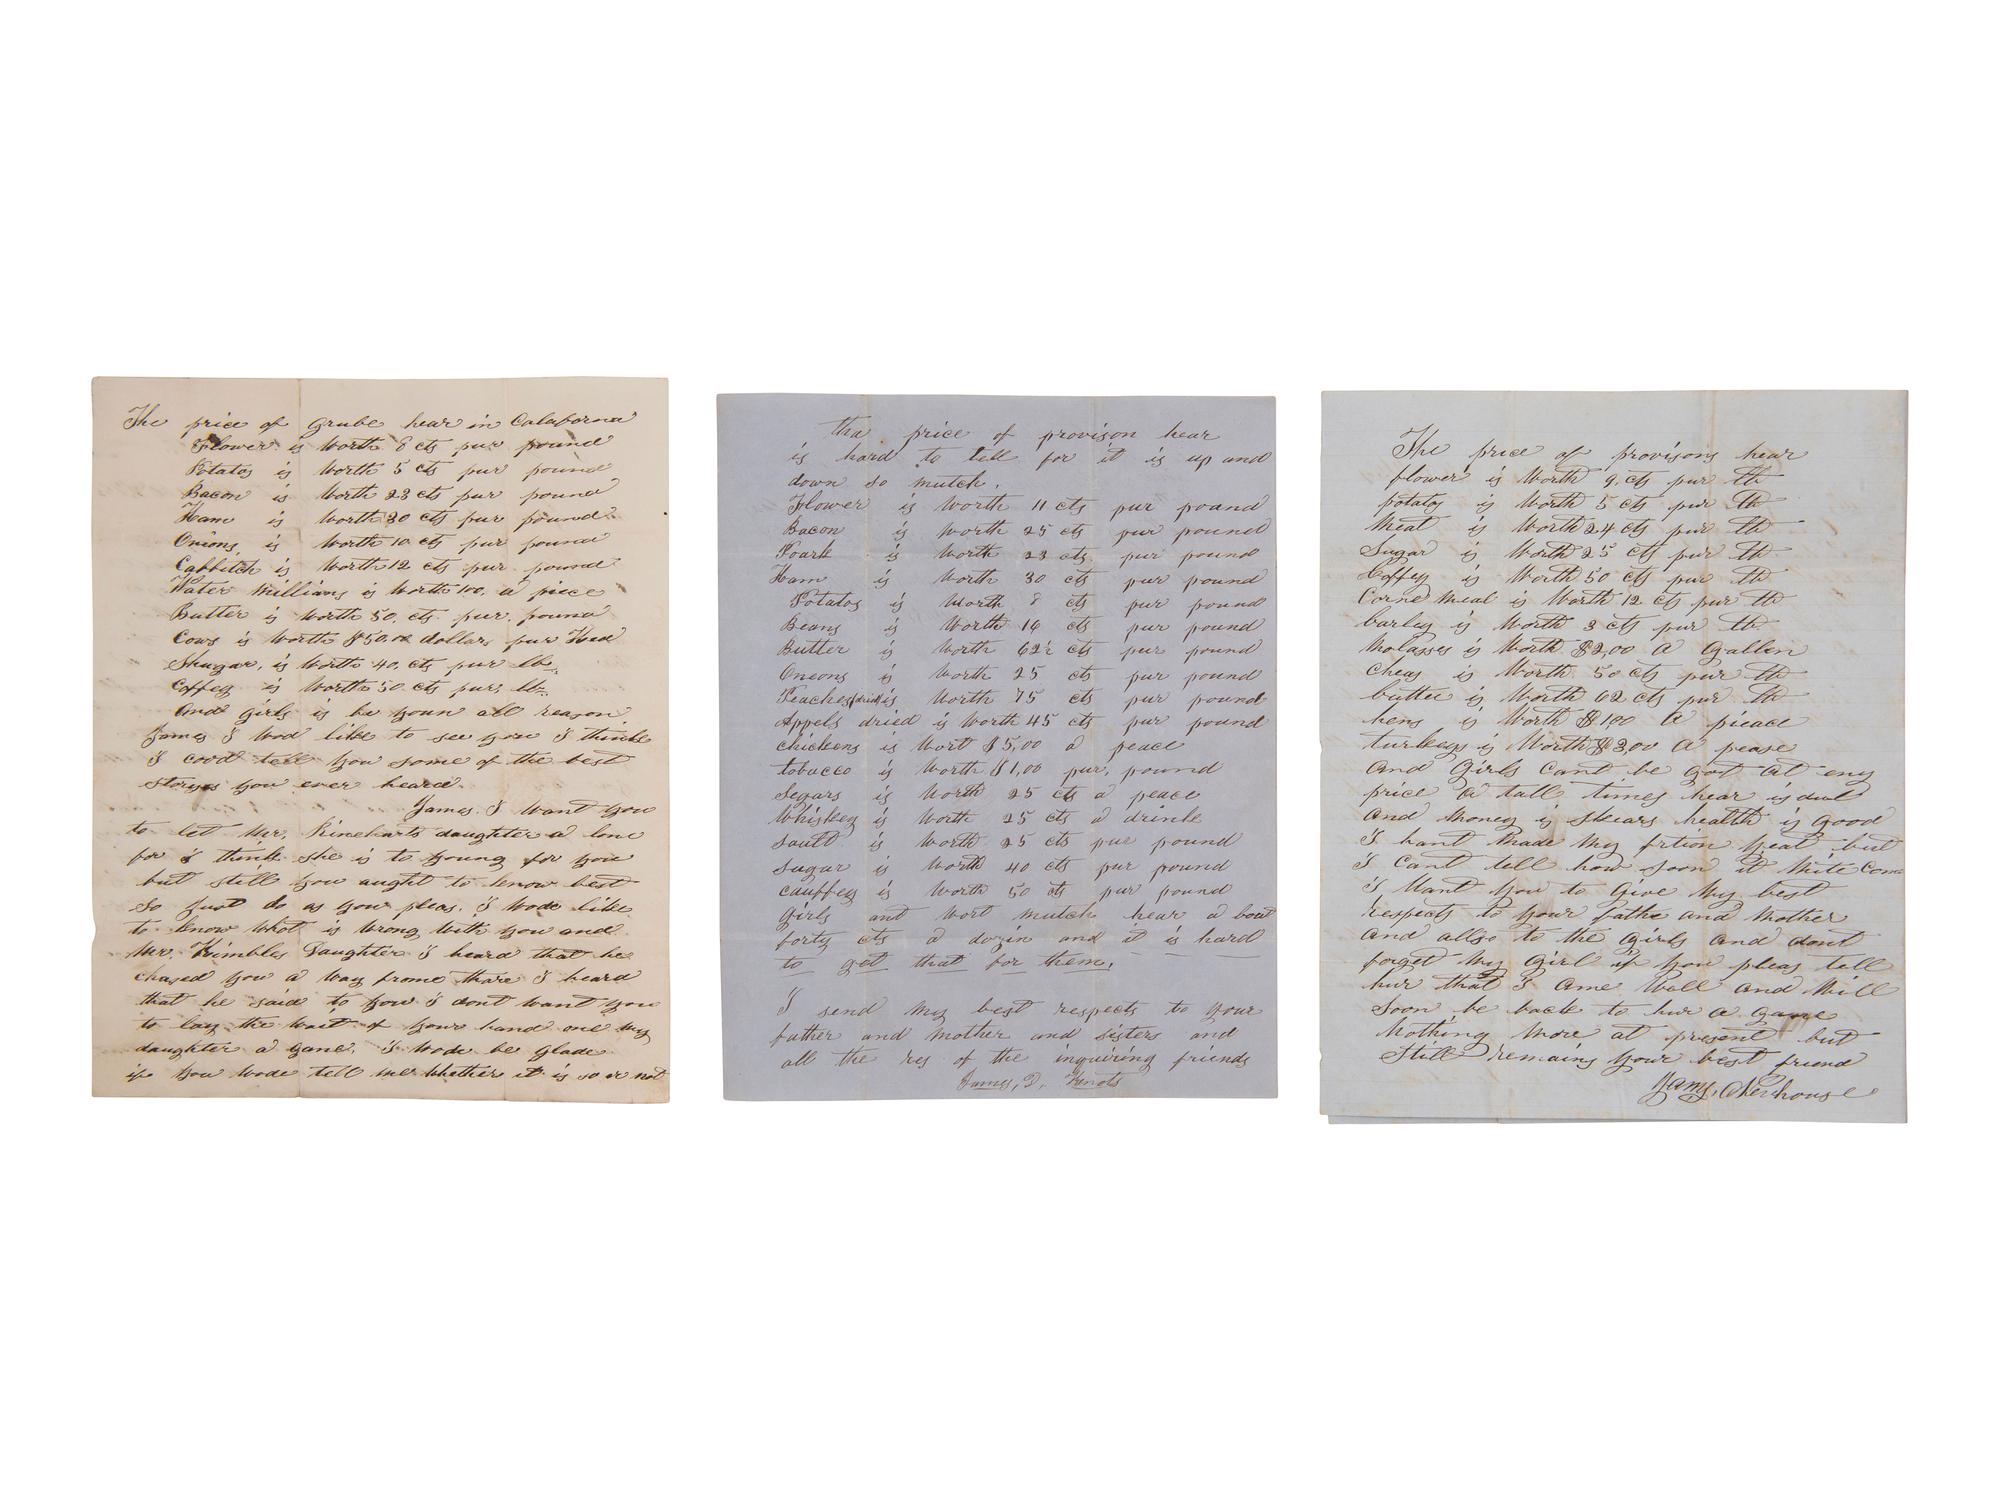 The price of grube hear in Calaforna
Flower is Worth 8 cts pur pound
Potatos is Worth 5 cts pur pound
Bacon is Worth 23 cts pur pound
Ham is Worth 30 cts pur pound
Onions is Worth 10 cts pur pound
Cabbitch is Worth 12 cts pur pound
Water Millians is Worth 100, a piece
Butter is Worth 50, cts pur, pound
Cows is Worth $50.00 dollars pur Hed
Shugar, is Worth 40, cts pur lb,
Coffey is Worth 50 cts pur, lb,
And girls is be youn all reason
James I Wod like to see you I thinke
I cood tell you some of the best
storyes you ever heard.
James. I Want you
to let Mr. Rineharts daughter a lone
for I think she is to young for you
but still you aught to know best
So Just do as you pleas. I Wode like
to know What is Wrong With you and
Mr. Kimbles Daughter I heard that he
chased you a Way frome thare I heard
that he said to you I dont Want you
to lay the Wait of your hand one my
daughter a gane. I Wode be glade
if you Wode tell me Whether it is so or not
tha price of provison hear
is hard to tell for it is up and
down so mutch.
Flower is Worth 11 cts pur pound
Bacon is Worth 25 cts pur pound
Poark is Worth 23 cts pur pound
Ham is Worth 30 cts pur pound
Potatos is Worth 8 cts pur pound
Beans is Worth 16 cts pur pound
Butter is Worth 62½ cts pur pound
Oneons is Worth 25 cts pur pound
Peaches dried is Worth 75 cts pur pound
Appels dried is Worth 45 cts pur pound
chickens is Wort $5,00 a peace
tobacco is Worth $1,00 pur, pound
Segars is Worth 25 cts a peace
Whiskey is Worth 25 cts a drink
sault is Worth 25 cts pur pound
sugar is Worth 40 cts pur pound
cauffey is Worth 50 cts pur pound
girls ant Wort mutch hear a bout
forty cts a dozin and it is hard
to get that for them.
I send my best respects to your
father and mother and sisters and
all the res of the inquering friends
James, D. Knots
The price of provisons hear
flower is Worth 9, cts pur lb
potatos is Worth 5 cts pur lb
Meat is Worth 24 cts pur lb
Sugar is Worth 25 cts pur lb
Coffey is Worth 50 cts pur lb
Corne Meal is Worth 12 cts pur lb
barley is Worth 3 cts pur lb
Molasses is Worth $2,00 A Gallen
cheas is Worth 50 cts pur lb
butter is Worth 62 cts pur lb
hens is Worth $4,00 A pieace
turkeys is Worth $8,00 A pease
and Girls cant be got At eny
price a tall times hear is dul
And Money is skears health is good
I hant Made My frtion yeat but
I Cant tell how soon it Mite Come
I Want you to give My best
respects to your fathe and Mother
and allso to the girls And dont
forget My Girl if you pleas tell
hur that I Ame Well and Will
soon be back to hur A game
Nothing More at present but
Still remains your best friend